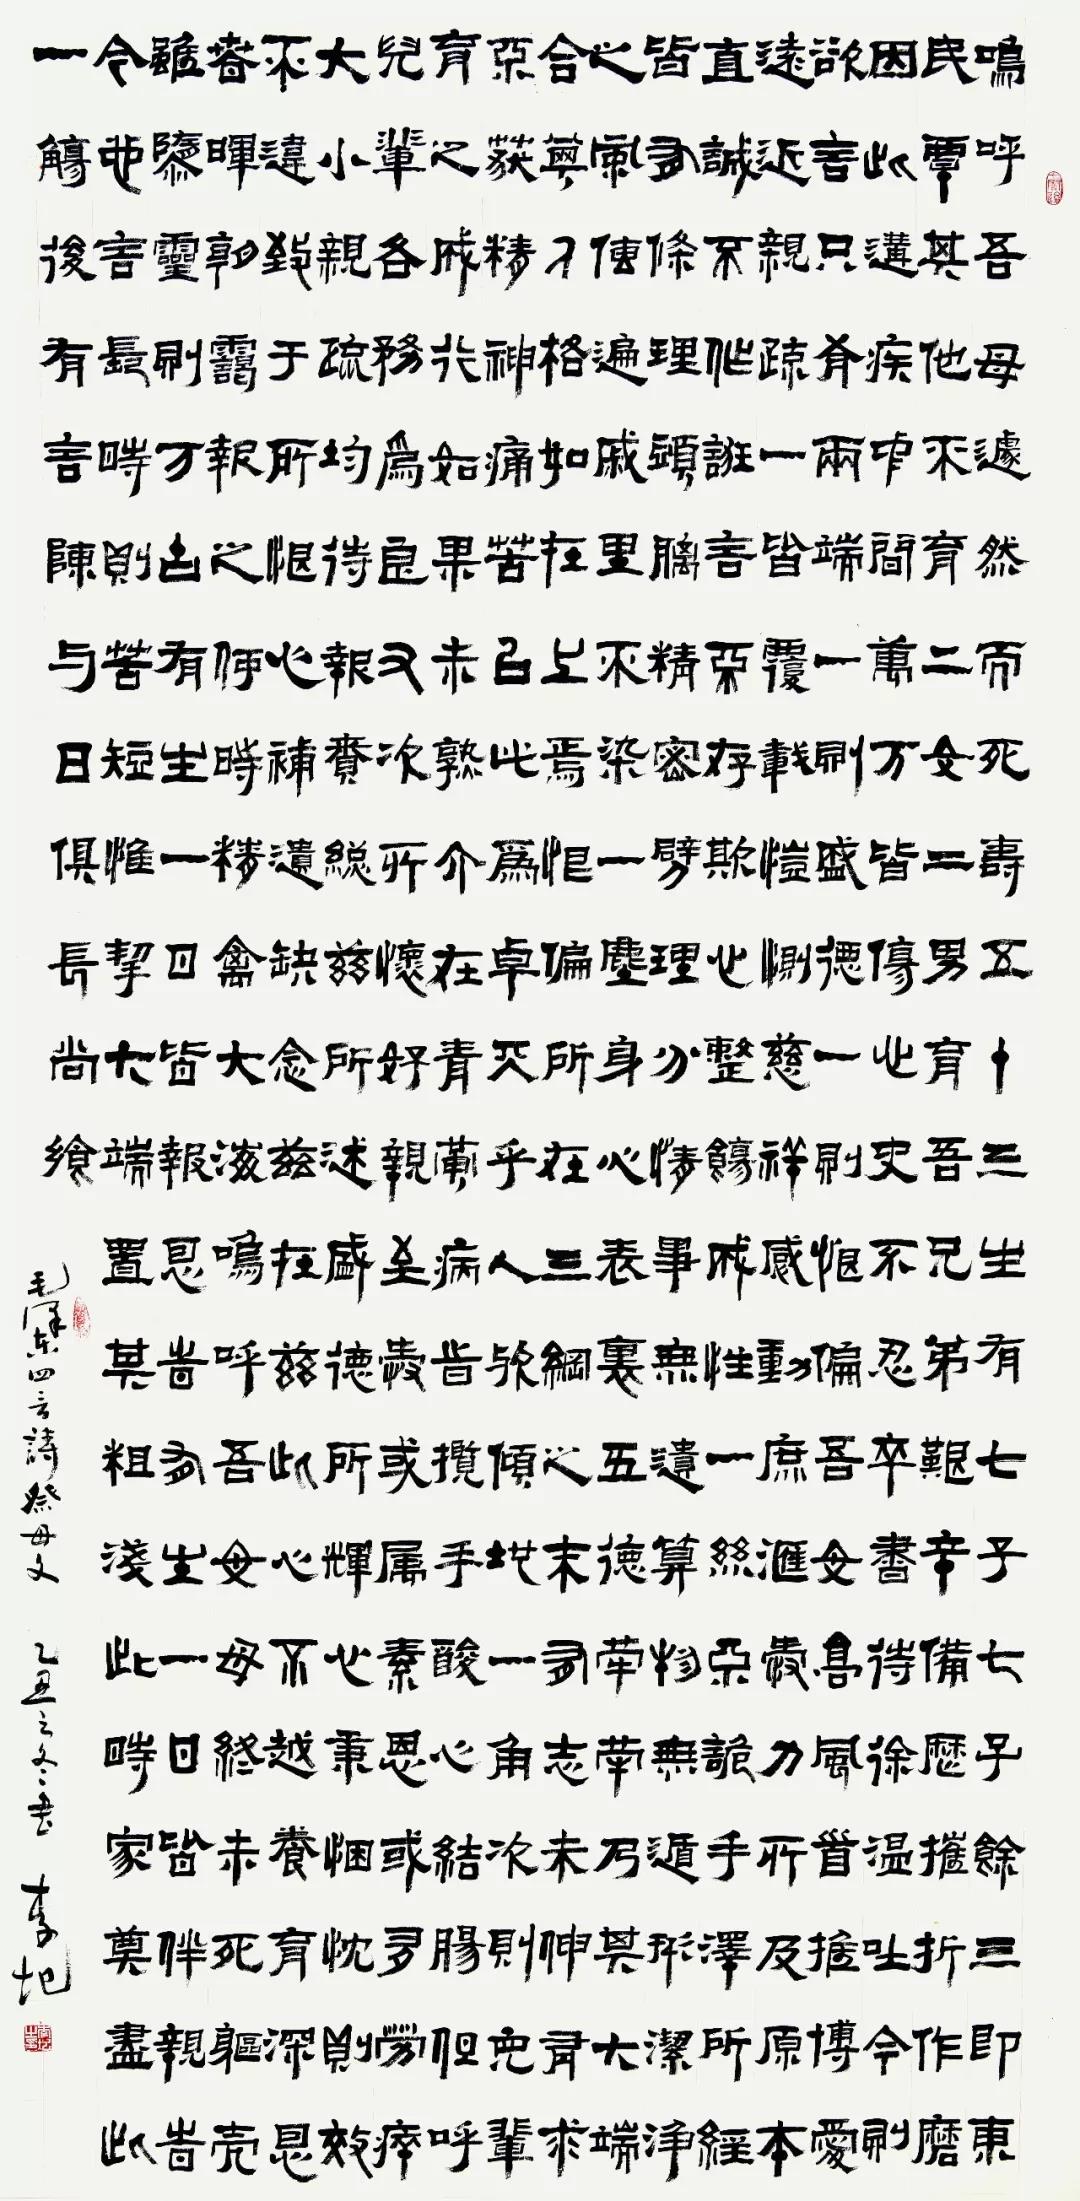 嗚呼吾母遽然而死壽五十三生有七子七子餘三即東
民覃其他不育二女二男育吾兄弟艱辛備歷摧折作磨
因此遘疾中間萬万皆傷心史不忍卒書待徐温吐今則
欲言只有兩端一則盛德一則恨偏吾母高風首推博愛
遠近親疏一皆覆載愷惻慈祥感動庶滙愛力所及原本
直誠不作誑言不存欺心整飭成性一絲不詭手澤所經
皆有條理頭腦精密劈理分情事無遺算物無遁形潔淨
之風傳遍戚里不染一塵身心表裏五德犖犖乃其大端
合其人格如在上焉恨偏所在三綱之末有志未伸有求
不獲精神痛苦以此為卓天乎人欤傾地一角次則兒輩
育之成行如果未熟介在青黃病時攬手酸心結腸但呼
兒輩各務為良又次所懷好親至愛或属素恩或多勞瘁
大小親疏均待報賚総兹所述盛德所輝必秉悃忱則效
不違致于所恨必補遺缺念兹在兹此心不越養育深恩
春暉朝靄報之何時精禽大海嗚呼吾母母終未死軀殼
雖隳靈則万古有生一日皆報恩時有生一日皆伴親時
今也言長時則苦短惟挈大端置其粗淺此時家奠盡此
一觴後有言陳与日俱長尚饗
毛澤东四言詩祭母文 乙丑之冬书 李圯